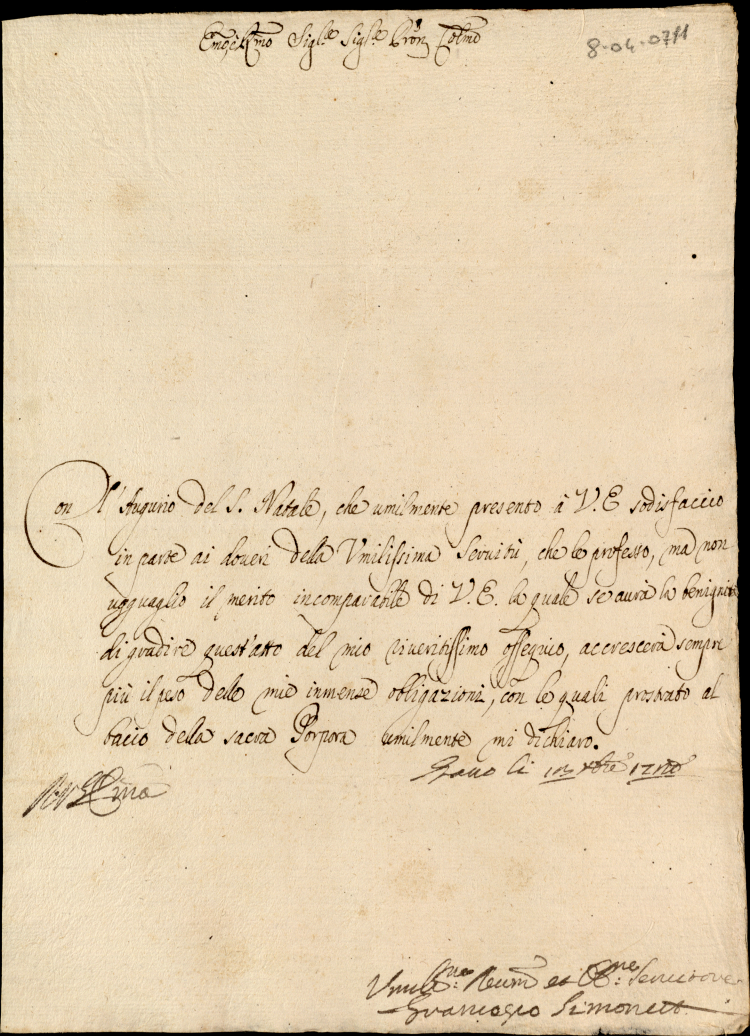 Sig.re Sig.re Pron Colmo
8-04-0711
Con l'Augurio del S. Natale, che umilmente presento à V. E sodisfaccio
in parte ai doveri della Vmilissima Servitù, che le professo, ma non
ugguaglio il merito incomparabile di V. E. la quale se aurà la benignità
di gradire quest'atto del mio riveritissimo ossequio, accrescerà sempre
più il peso delle mie inmense obligazioni, con le quali prostrato al
bacio della sacra Porpora umilmente mi dichiaro.
li
et Servitore
Simonett